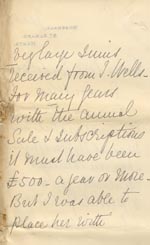 received from J. Wells
for many years
with the annual
Sale & Subscriptions
it must have been
£500 - a year or more -
But I was able to
place her with